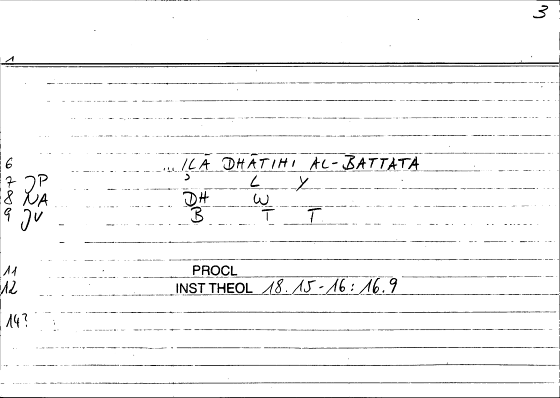 3
1
6 ... ILĀ DHĀTIHI AL-BATTATA
7 JP ʾ L Y
8 NA DH W
9 JV B T T
11 PROCL
12 INST THEOL 18.15-16: 16.9
14?